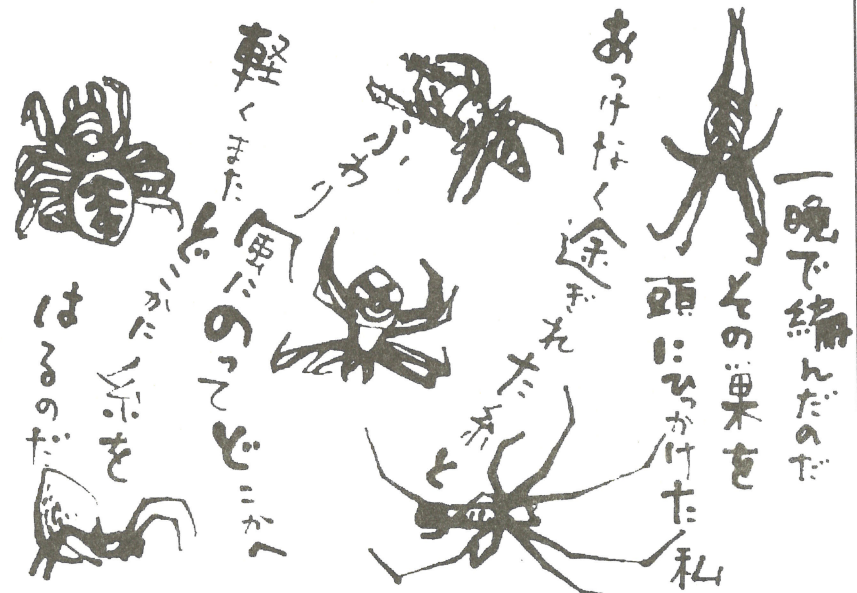 一晩で編んだのだ
その巣を
頭にひっかけた私
あっけなく途ぎれた糸と
ふわり風にのってどこかへ
軽くまたどこかに糸を
はるのだ